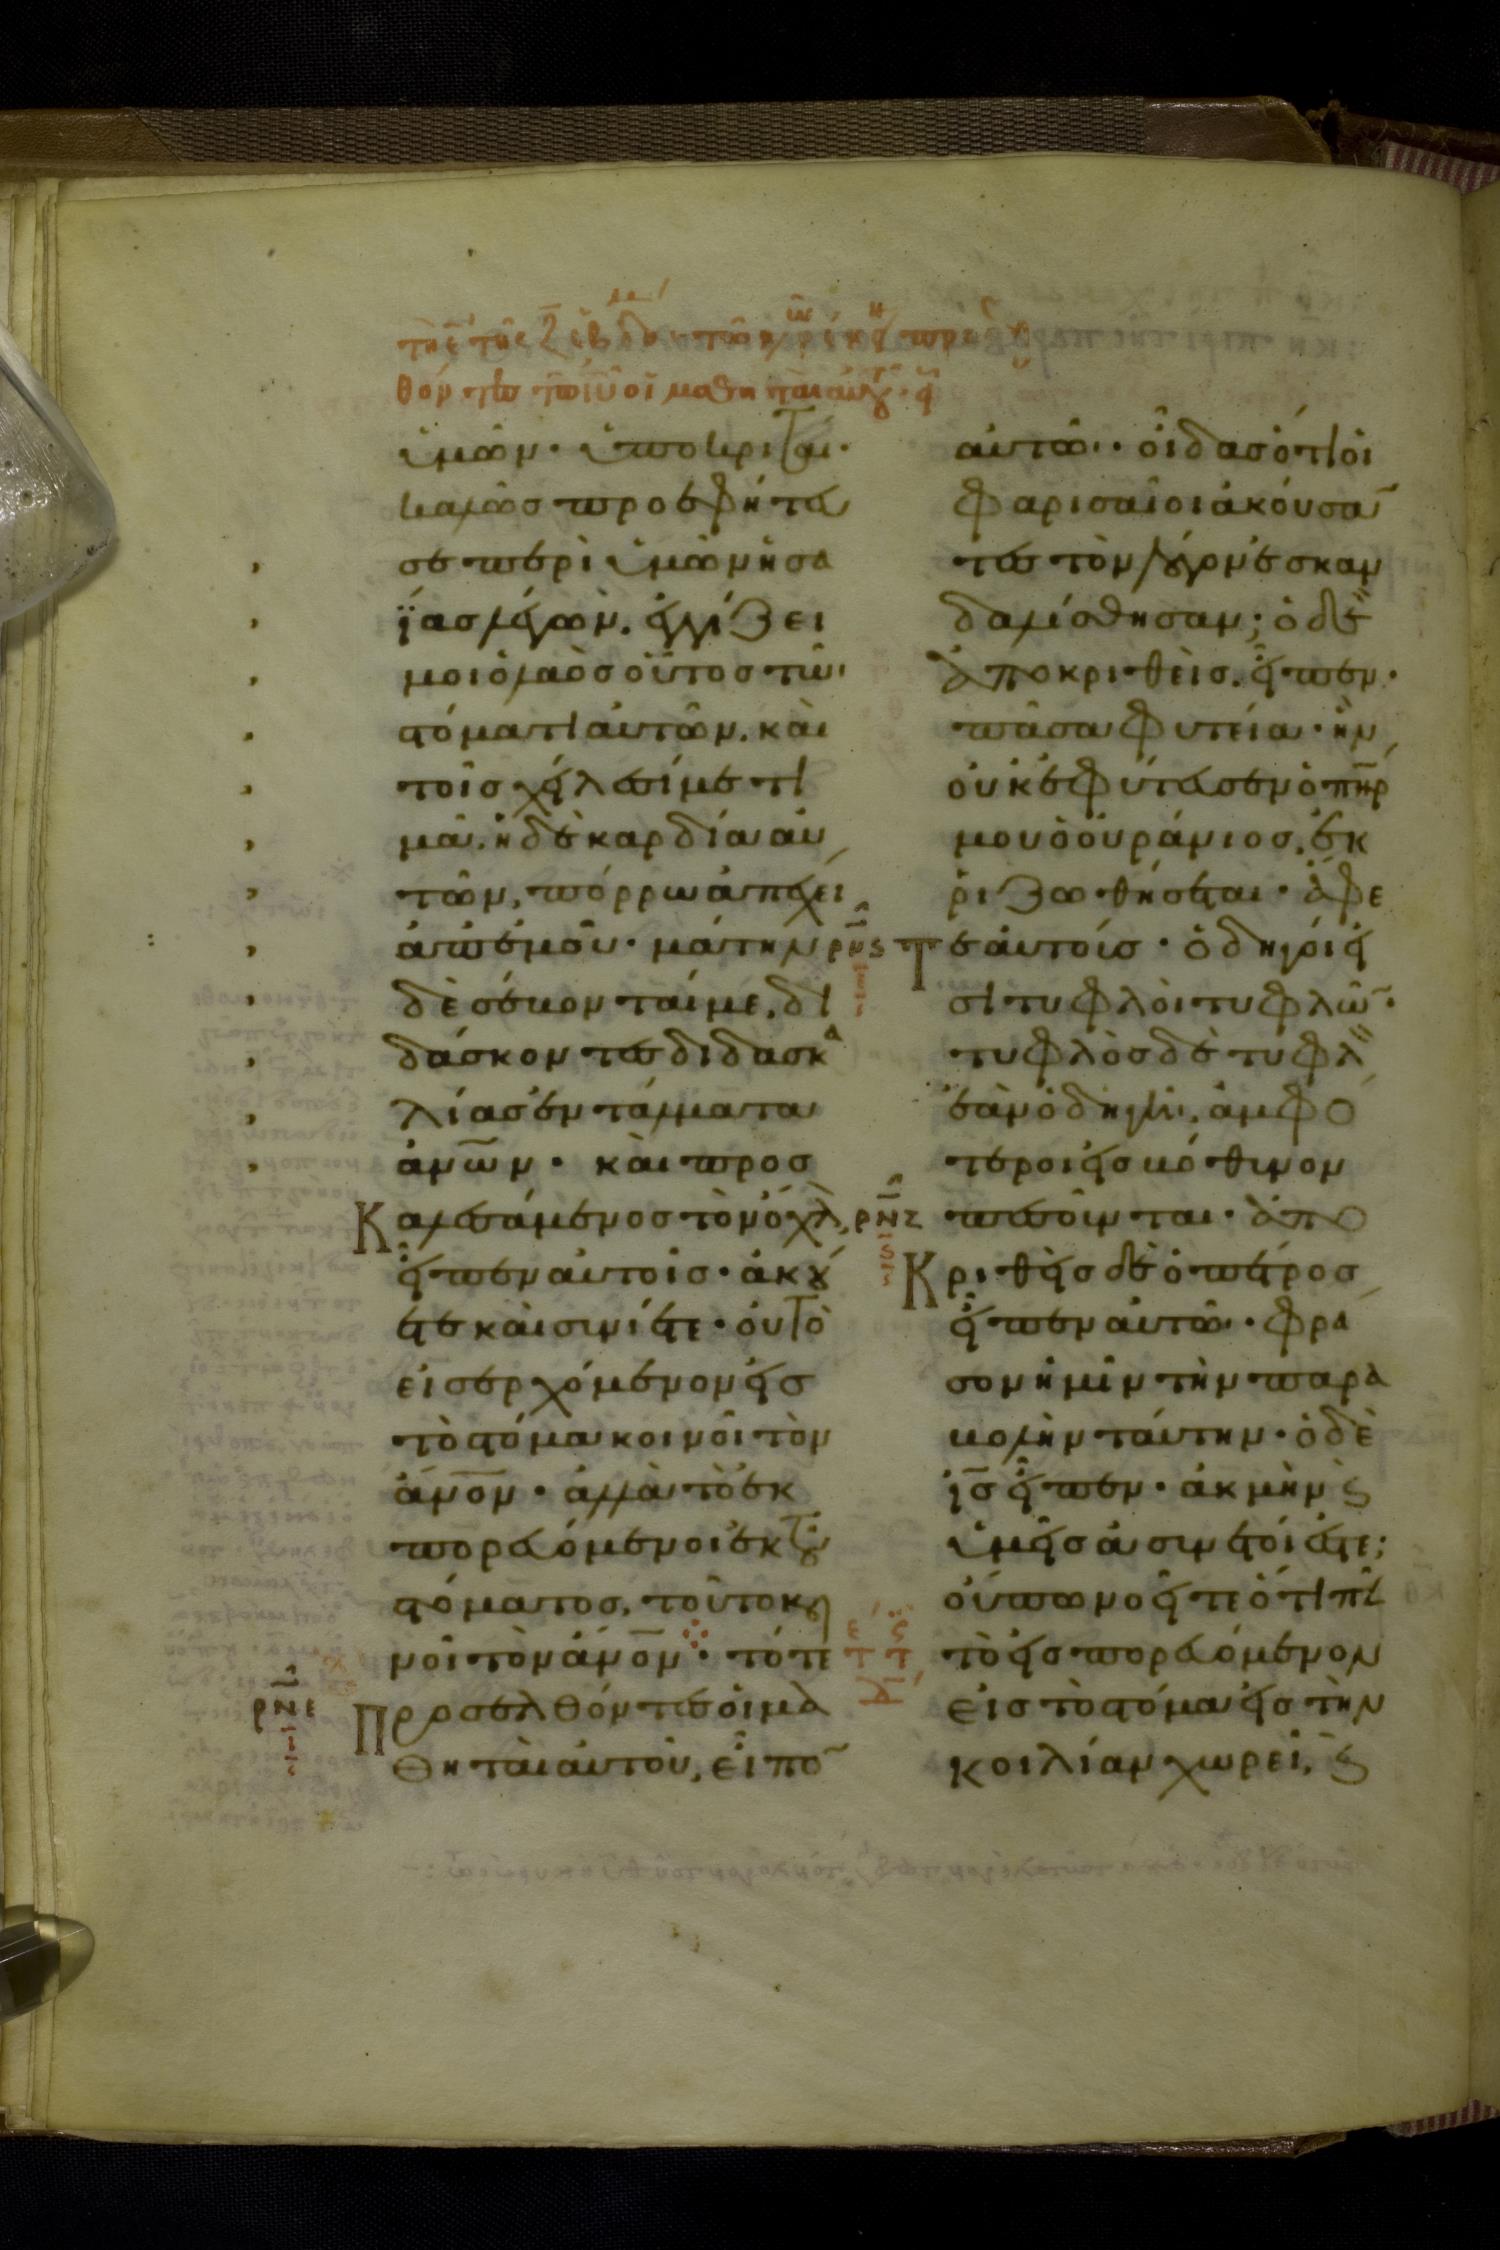 ὑμῶν· ὑποκριταί·
καλῶς προεφήτευ
σε περὶ ὑμῶν ἡσα
ΐας λέγων. ἐγγίζει
μοι ὁ λαὸς οὗτος τῶ
στόματι αὐτῶν. καὶ
τοῖς χείλεσί με τι
μᾶ. ἡ δὲ καρδία αὐ
τῶν, πόρρω ἀπέχει
ἀπ' ἐμοῦ· μάτην
δὲ σέβονταί με, δι
δάσκοντες διδασκα
λίας ἐντάλματα
ἀν̅ων· καὶ προσ
Καλεσάμενος τὸν ὄχλ
εἶπεν αὐτοῖς· ἀκού
ετε καὶ συνίετε· οὐ τὸ
εἰσερχόμενον εἰς
τὸ στόμα κοινοῖ τὸν
ἄν̅ον· ἀλλὰ τὸ ἐκ
πορευόμενον ἐκ τοῦ
στόματος, τοῦτο κοι
νοῖ τὸν ἄν̅ον· τότε
ρνε Προσελθόντες οἱ μα
θηταὶ αὐτοῦ, εἶπο̅
αὐτῶ· οἶδας ὅτι οἱ
φαρισαῖοι ἀκούσα̅
τες τὸν λόγον ἐσκαν
δαλίσθησαν; ὁ δὲ
ἀποκριθεὶς. εἶπεν·
πᾶσα φυτεία· ἣν
οὐκ ἐφύτευσεν ὁ π̅ηρ
μου ὁ οὐράνιος, ἐκ
ριζωθήσεται· ἄφε
ρνς Τε αὐτοίς· ὁδηγοί εἰ
σι τυφλοὶ τυφλῶ̅·
τυφλὸς δὲ τυφλ
ἐὰν ὁδηγῆ, ἀμφό
τεροι εἰς βόθυνον
ρνζ πεσοῦνται· ἀπο
Κριθεὶς δὲ ὁ πέτρος
εἶπεν αὐτῶ· φρά
σον ἡμῖν τὴν παρα
βολὴν ταύτην· ὁ δὲ
ι̅ς εἶπεν· ἀκμὴν ϗ
ὑμεῖς ἀσύνετοί ἐστε;
οὔπω νοεῖτε ὅτι πᾶν
τὸ εἰσπορευόμενον
εἰς τὸ στόμα εἰς τὴν
κοιλίαν χωρεῖ, ϗ